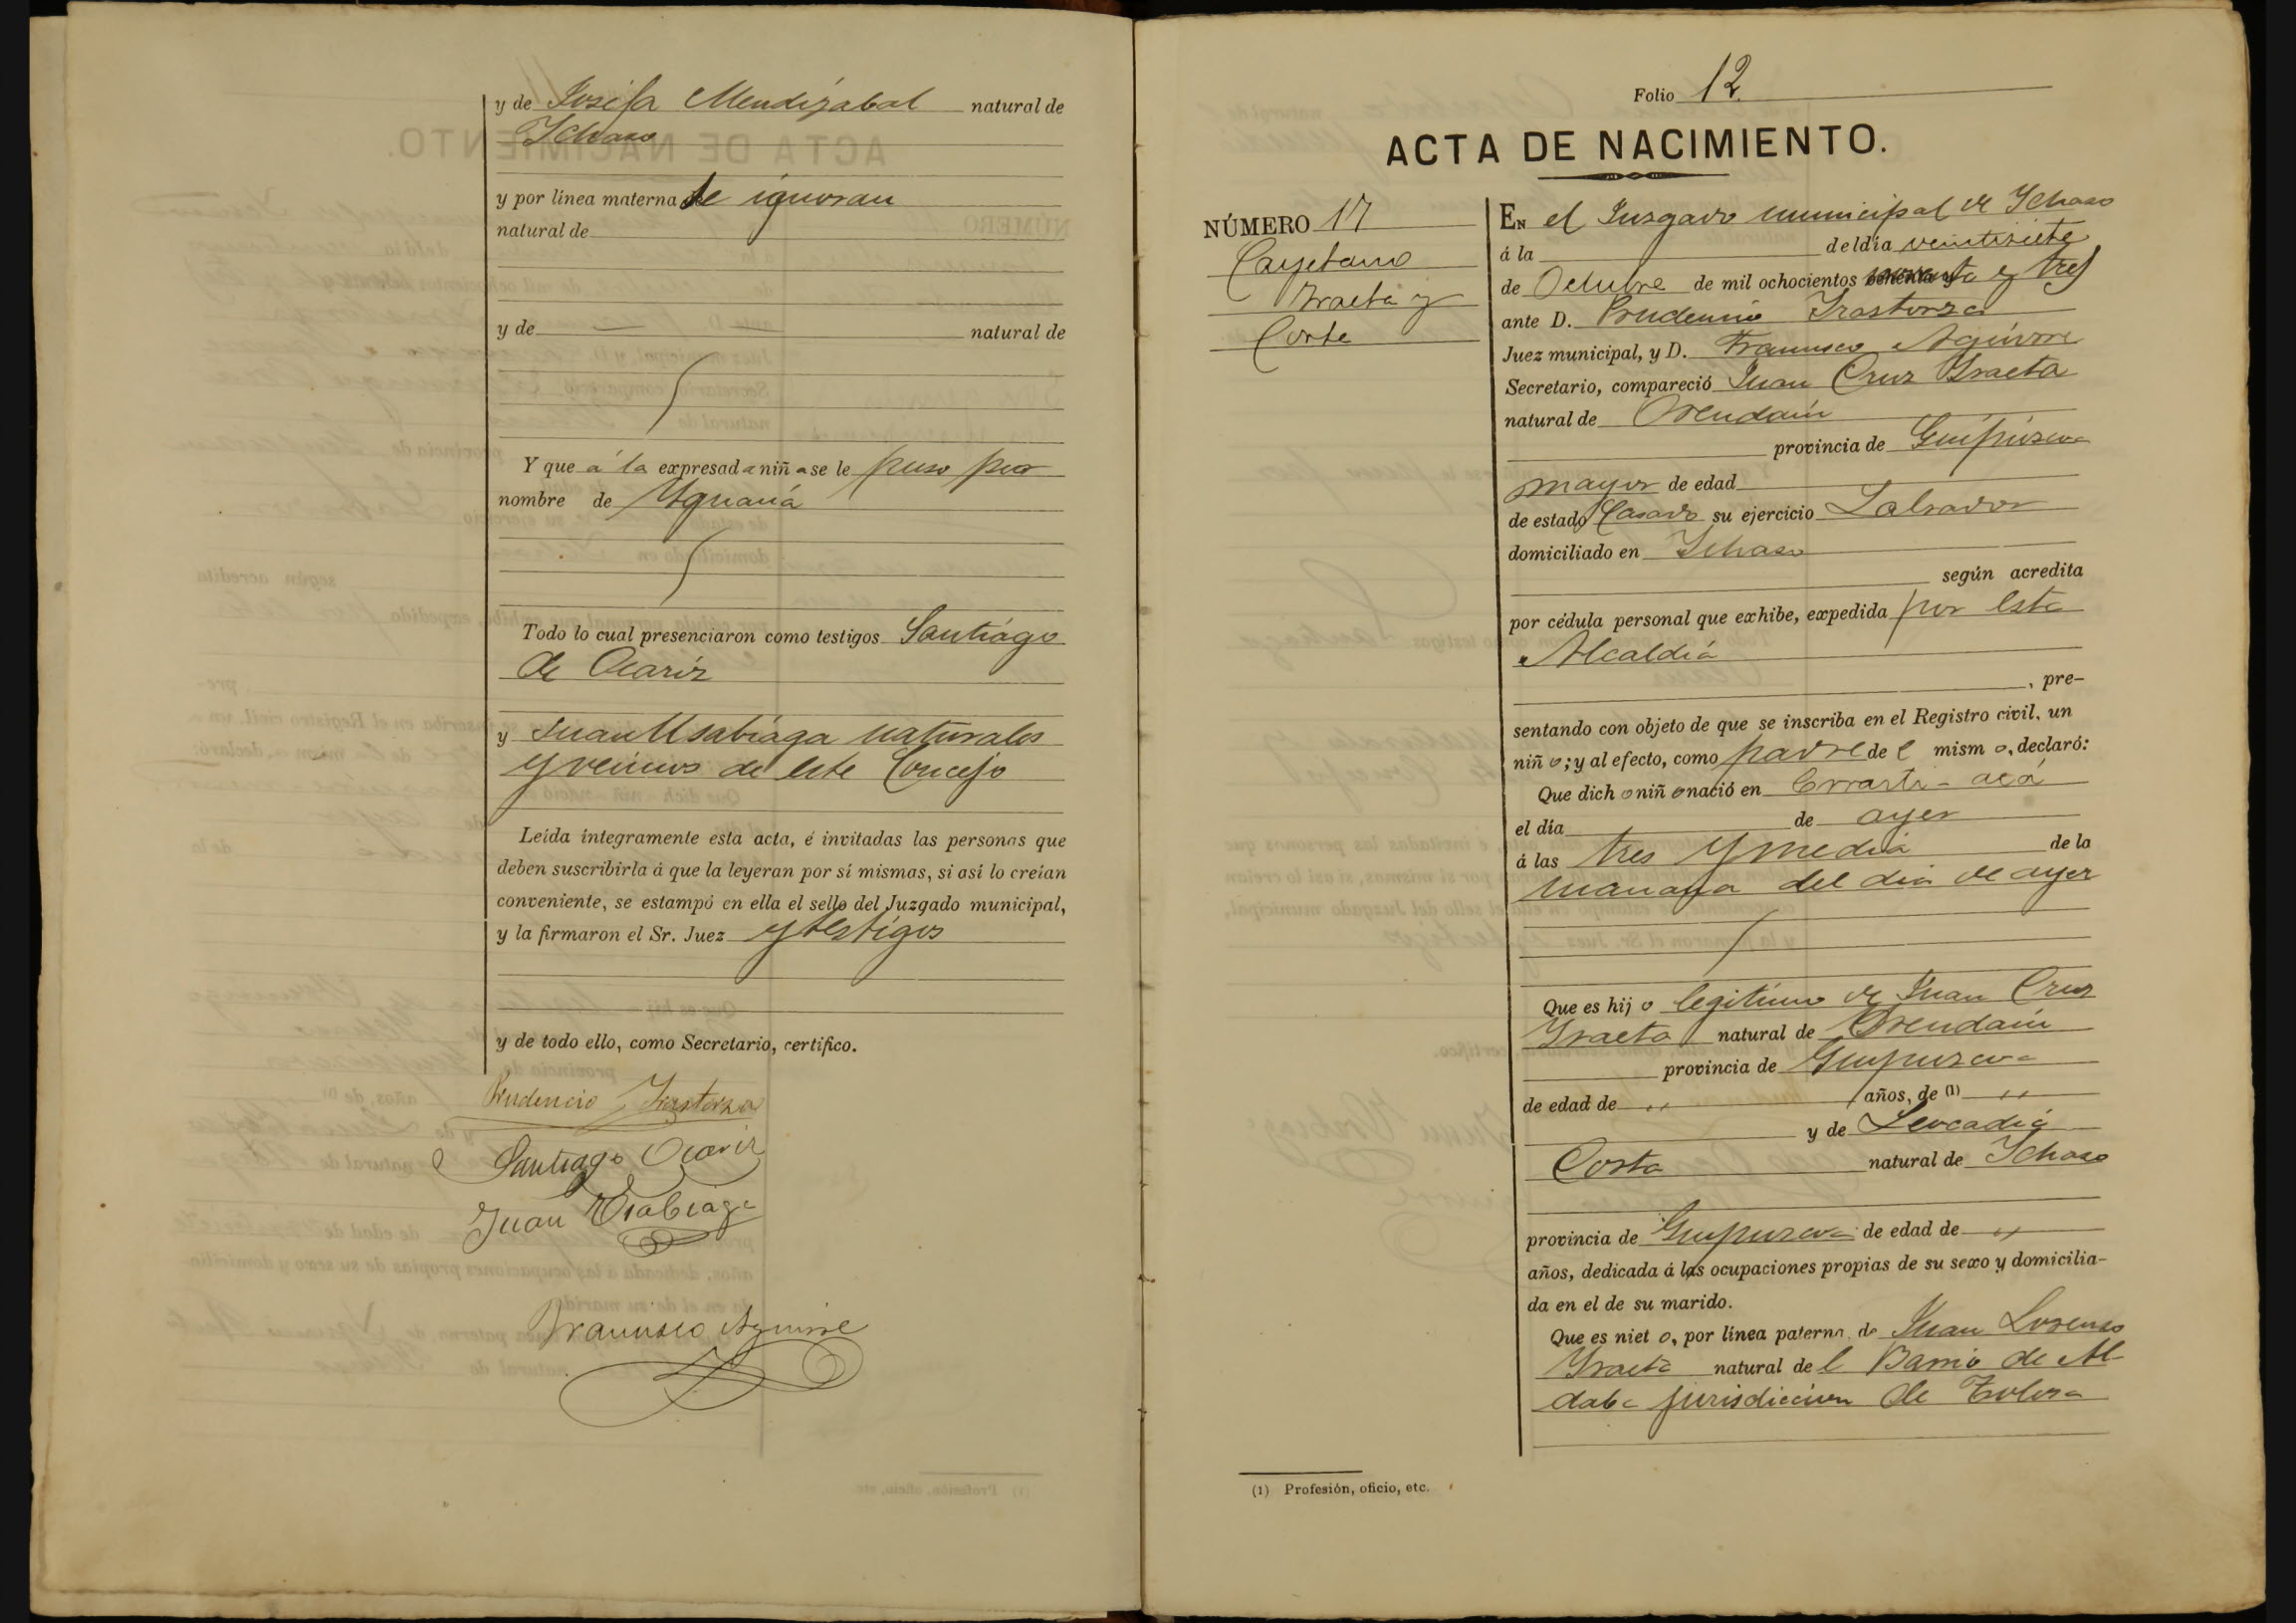 y de Josefa Mendizabal natural de
Ichaso
y por línea materna de Se ignoran
natural de
y de natural de
Y que á la expresada niña se le puso por
nombre de Ygnaciá
Todo lo cual presenciaron como testigos Santiago
de Ocariz
y Juan Usabiaga naturales
y vecinos de este Concejo
Leída íntegramente esta acta, é invitadas las personas que
deben suscribirla á que la leyeran por sí mismas, si así lo creían
conveniente, se estampó en ella el sello del Juzgado municipal,
y la firmaron el Sr. Juez y testigos
y de todo ello, como Secretario, certifico.
Prudencio Irastorza
Santiago Ocariz
Juan Usabiaga
Francisco Aguirre
Folio 12.
ACTA DE NACIMIENTO.
NÚMERO 17
Cayetano
Iraeta y
Corta
En el Juzgado municipal de Ichaso
á la del día veintisiete
de Octubre de mil ochocientos noventa y tres
ante D. Prudencio Irastorza
Juez municipal, y D. Francisco Aguirre
Secretario, compareció Juan Cruz Yraeta
natural de Orendain
provincia de Guipúzcoa
mayor de edad
de estado Casado su ejercicio Labrador
domiciliado en Ichaso
según acredita
por cédula personal que exhibe, expedida por esta
Alcaldía
, pre-
sentando con objeto de que se inscriba en el Registro civil, un
niño; y al efecto, como padre del mismo, declaró:
Que dicho niño nació en
el día de ayer
á las tres y media de la
mañana del dia de ayer
Que es hijo legitimo de Juan Cruz
Yraeta natural de Orendain
provincia de Guipuzcoa
de edad de " años, de (1) "
y de Leocadia
Corta natural de Ichaso
provincia de Guipuzcoa de edad de "
años, dedicada á las ocupaciones propias de su sexo y domicilia-
da en el de su marido.
Que es nieto, por línea paterna de Juan Lorenzo
Yraeta natural del Barrio de Al-
daba jurisdiccion de Tolosa
(1) Profesión, oficio, etc.